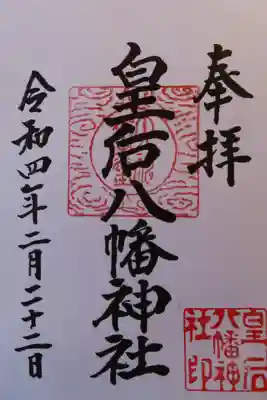 奉拝
皇后八幡神社
令和四年二月二十二日
皇后
八幡神
社印